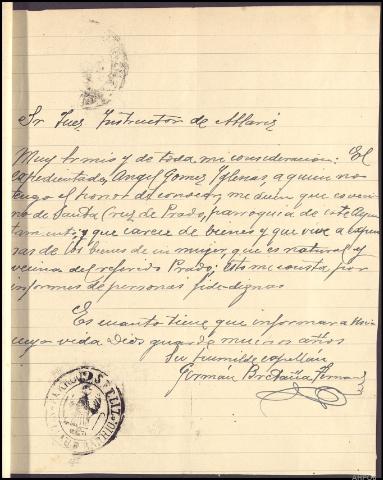 Sr Juez Instructor de Allariz
Muy Srmio y de toda mi consideracion: El
expedientado, Angel Gomez Yglesias, a quien no
tengo el honor de conocer, me dicen que es veci
no de Santa Cruz de Prado, parroquia de este Ayun
tamiento; y que carece de bienes y que vive a expen
sas de los bienes de su mujer, que es natural y
vecina del referido Prado: Esto me consta por
informes de personas fidedignas
Es cuanto tiene que informar a
cuya vida Dios guarde muchos años
Su humilde capellán
Germán Fernan
PARROQUIA S. FELIX